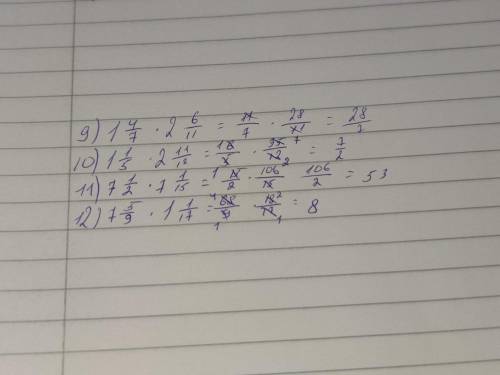 9) 1 4/7 · 2 6/11 = 11/7 · 28/11 = 28/7
10) 1 1/5 · 2 11/12 = 1 6/5 · 35/12 7 2 = 7/2
11) 7 1/2 · 7 1/15 = 1 15/2 · 106/15 106/2 = 53
12) 7 5/9 · 1 1/17 = 4 68/9 1 · 18/17 2 1 = 8